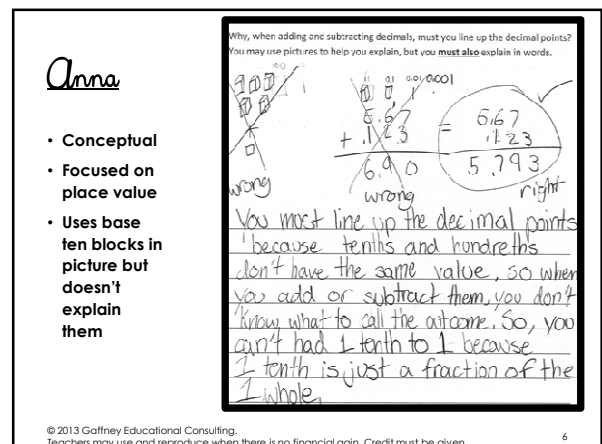 Anna
• Conceptual
• Focused on
place value
• Uses base
ten blocks in
picture but
doesn't
explain
them
Why, when adding and subtracting decimals, must you line up the decimal points?
You may use pictures to help you explain, but you must also explain in words.
0.1 0.01 0.001
5.67
+ .123
6.90
wrong
wrong
= 5.67
.123
5.793
right
You most line up the decimal points
because tenths and hundreths
don't have the same value, so when
you add or subtract them, you don't
know what to call the aitcome. So, you
can't had 1 tenth to 1 because
1 tenth is just a fraction of the
1 whole.
© 2013 Gaffney Educational Consulting.
Teachers may use and reproduce when there is no financial gain. Credit must be given.
6